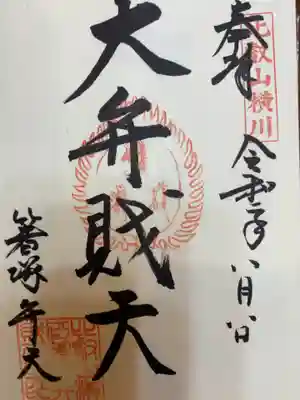 奉拝
比叡山横川
令和元年八月八日
大弁財天
箸塚弁天